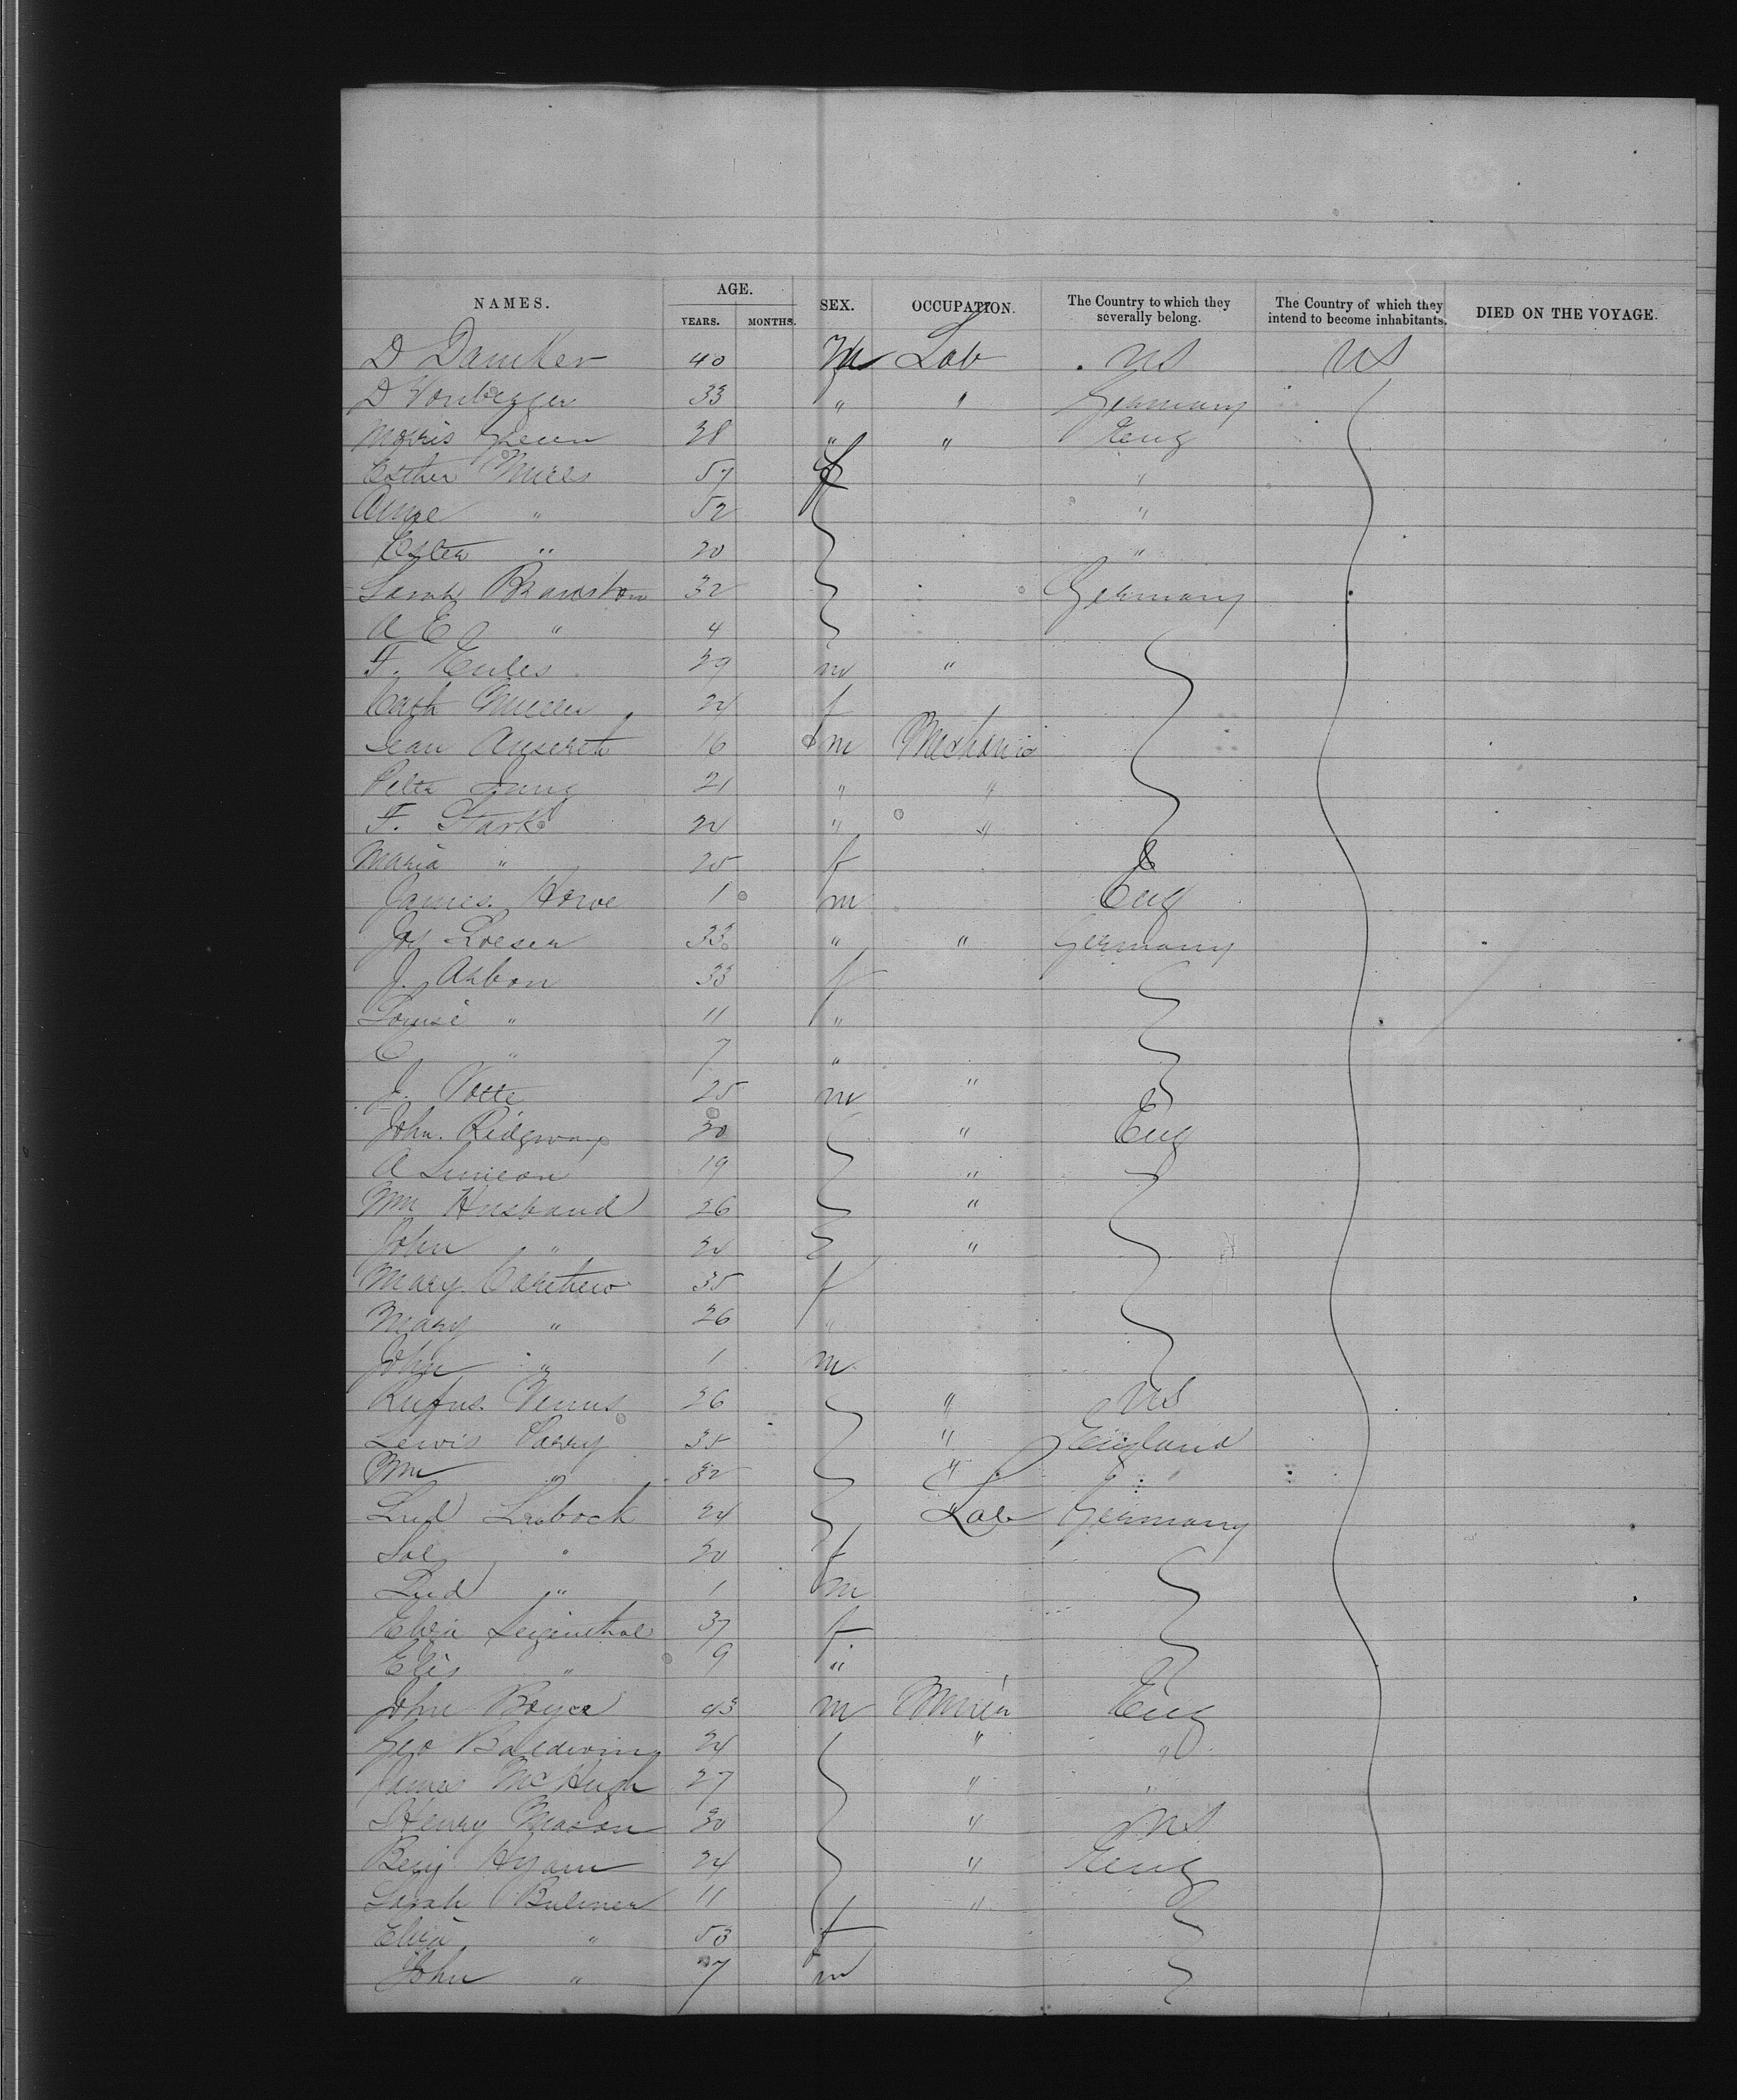 NAMES. AGE. SEX. OCCUPATION. The Country to which they severally belong. The Country of which they intend to become inhabitants. DIED ON THE VOYAGE.
YEARS. MONTHS.
D Damker 40 M Lab US US
D 33 " " Germany
Morris Green 28 " " Eng
Esther Mills 57 f "
Anne " 52 "
Ester " 20 "
Sarah 32 Germany
A E " 4
F. Eules 29 m "
Cath Muller 24 f
Jean 16 m Mechanic
Peter Jung 21 " "
F. Stark 24 " "
Maria " 25 f
James Howe 1 m Eng
Jos Loeser 33 " " Germany
J. Ahbon 33 f
Louise " 11 "
C " 7 "
J. Votte 25 m "
John Ridgway 30 " Eng
A Simeon 19 "
Wm Husband 26 "
John " 24 "
Mary Carthew 35 f
Mary " 26 "
John " 1 m
Rufus Venus 26 " US
Lewis Parry 35 " England
Wm " 32 " "
Lud Laubock 24 Lab Germany
Sal " 20 f
Lud " 1 m
Eliza 37 f
Elis " 9 "
John Boyce 43 m Miner Eng
Geo Baldwin 24 " "
James McHugh 27 " "
Henry Mason 30 " US
Benj Hyam 24 " Eng
Sarah Bulmer 11 "
Eliza " 53 f
John " 7 m